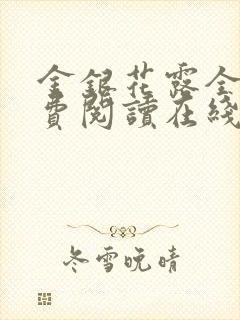 金銀花露全
費閱讀在綫
冬雪晚晴